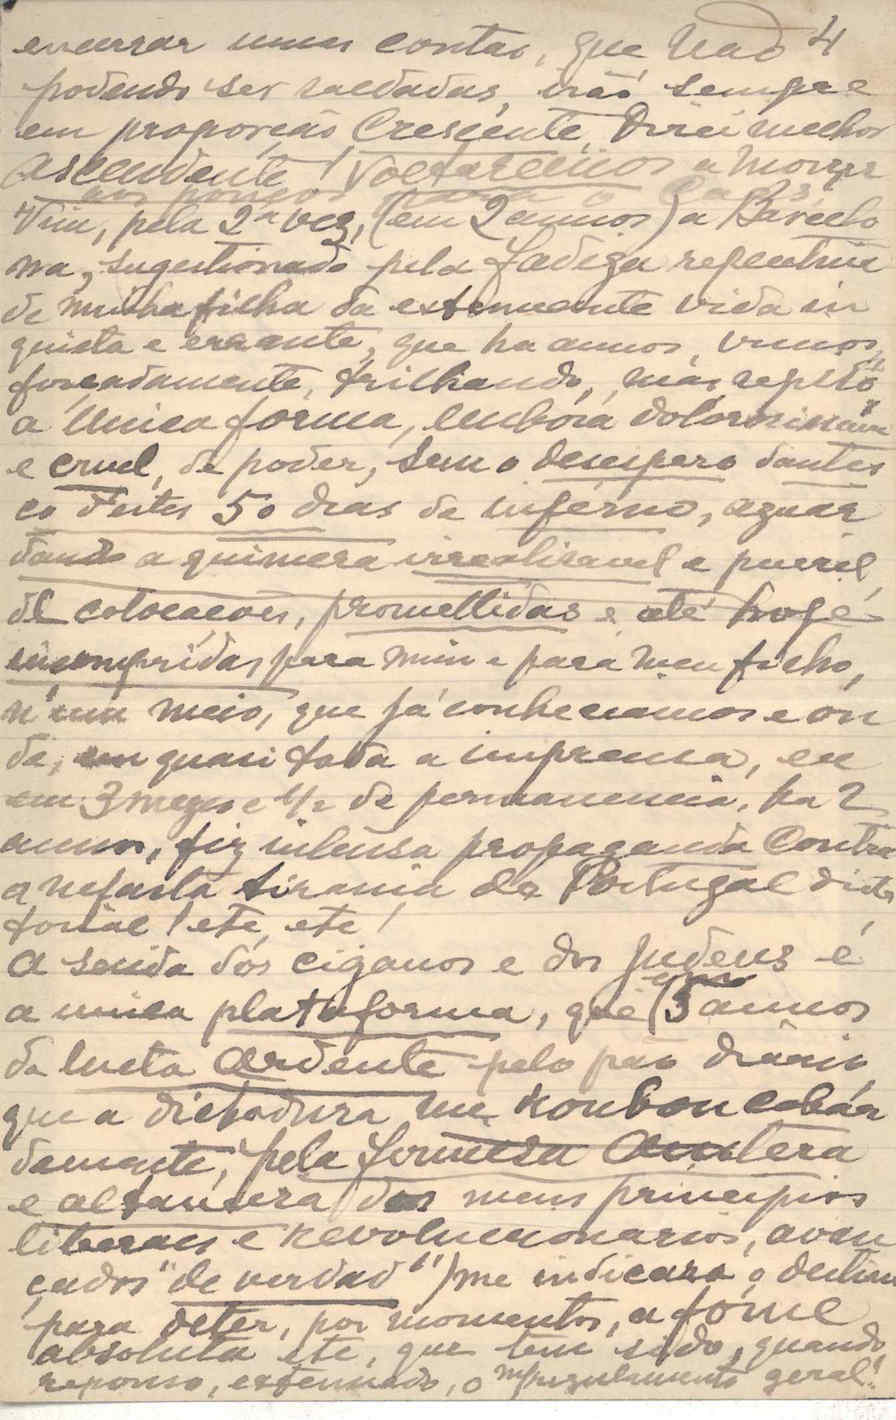 encerrar umas contas, que não 4
podendo ser saldadas, irão sempre
em proporção crescente, direi melhor
ascendente! Voltaremos a morrer
aos poucos para o
Vim, pela 2ª vez, (em 2 annos) a Barcelo
na, sugestionado pela fadiga repentina
de minha filha da extenuante vida in
quieta e errante, que ha annos, vimos,
forçadamente, trilhando, mas, repito
a unica forma, embora dolorosissima
e cruel, de poder, sem o desespero dantes
co d'estes 50 dias de inferno, aguar
dando a quimera irrealisavel e pueril
de colocações, promettidas e até hoje
incumpridas para mim e para meu filho,
n'um meio, que já conheciamos e on
de, em quasi toda a imprensa, eu
em 3 mezes e 1/2 de permanencia, ha 2
annos, fiz intensa propaganda contra
a nefasta tirania de Portugal dicta
torial! etc, etc!
A senda dos ciganos e dos Judeus é
a unica plataforma, que (3 annos
da lucta ardente pelo pão diário,
que a dictadura me roubou cobar
demente, pela firmeza austera
e altaneira dos meus principios
liberaes e revolucionarios, avan
çados "de verdad") me indicara o destino
para deter, por momentos, a fome
absoluta etc, que tem sido, quando
reponso, extenuado, o geral!